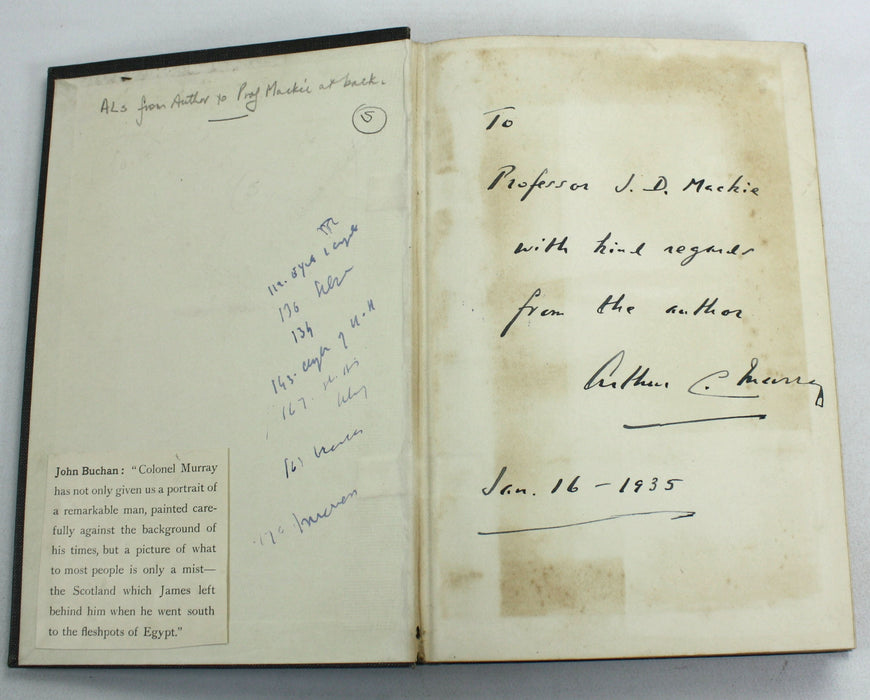 ALS from Author to Prof Mackie at back.
15
112.
136
134
143.
167.
163
170
John Buchan: "Colonel Murray
has not only given us a portrait of
a remarkable man, painted care-
fully against the background of
his times, but a picture of what
to most people is only a mist—
the Scotland which James left
behind him when he went south
to the fleshpots of Egypt."
To
Professor J. D. Mackie
with kind regards
from the author
Arthur C. Murray
Jan. 16 - 1935